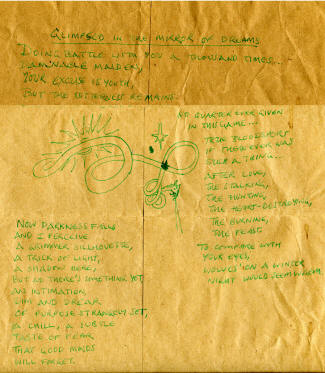 GLIMPSED IN THE MIRROR OF DREAMS
DOING BATTLE WITH YOU A THOUSAND TIMES...
MAIDEN,
YOUR EXCUSE IS YOUTH,
BUT THE BITTERNESS REMAINS.
NO QUARTER EVER GIVEN
IN THIS GAME...
BLOODSPORT
IF THERE EVER WAS
SUCH A THING...
AFTER LOVE,
THE STALKING,
THE HUNTING,
THE HEART-DESTROYING,
THE BURNING,
THE FEAST
TO COMPARE WITH
YOUR EYES,
WOLVES ON A WINTER
NIGHT WOULD SEEM WARM
NOW DARKNESS FALLS
AND I PERCEIVE
A GLIMMER SILHOUETTE,
A TRICK OF LIGHT,
A SHADOW HERE,
BUT NO THERE'S SOMETHING YET,
AN INTIMATION
DIM AND DREAR
OF PURPOSE STRANGELY SET,
A CHILL, A SUBTLE
TASTE OF FEAR
THAT GOOD MAIDS
WILL FORGET.